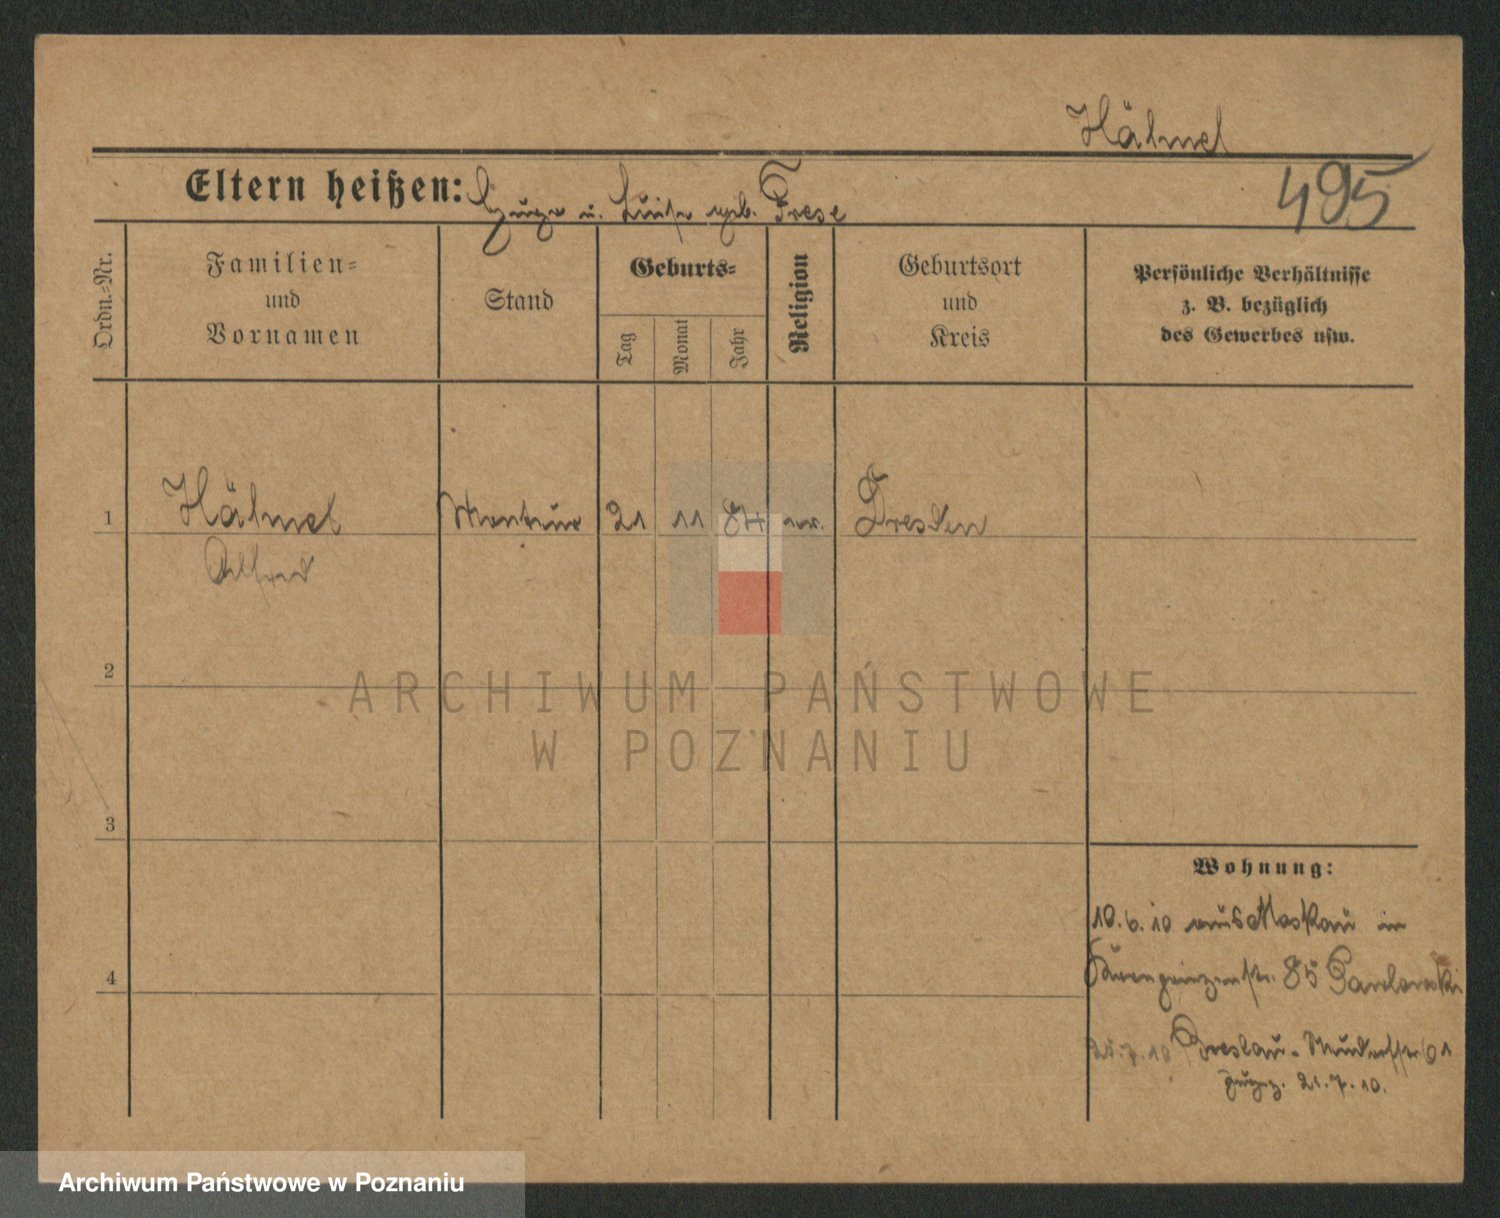 Hähnel
495
Eltern heißen: Hugo u. Luise geb. Frese
Ordn.-Nr.
Familien-
und
Vornamen
Stand
Geburts-
Tag
Monat
Jahr
Religion
Geburtsort
und
Kreis
Persönliche Verhältnisse
z. B. bezüglich
des Gewerbes usw.
1
Hähnel Monteur 21 11 84 ev. Dresden
Alfred
2
ARCHIWUM PAŃSTWOWE
W POZNANIU
3
Wohnung:
10.6.10 aus Moskau in
4
Kronprinzenstr. 85 Pawlowski
25.7.10 Breslau - 61
zugez. 21.7.10.
Archiwum Państwowe w Poznaniu